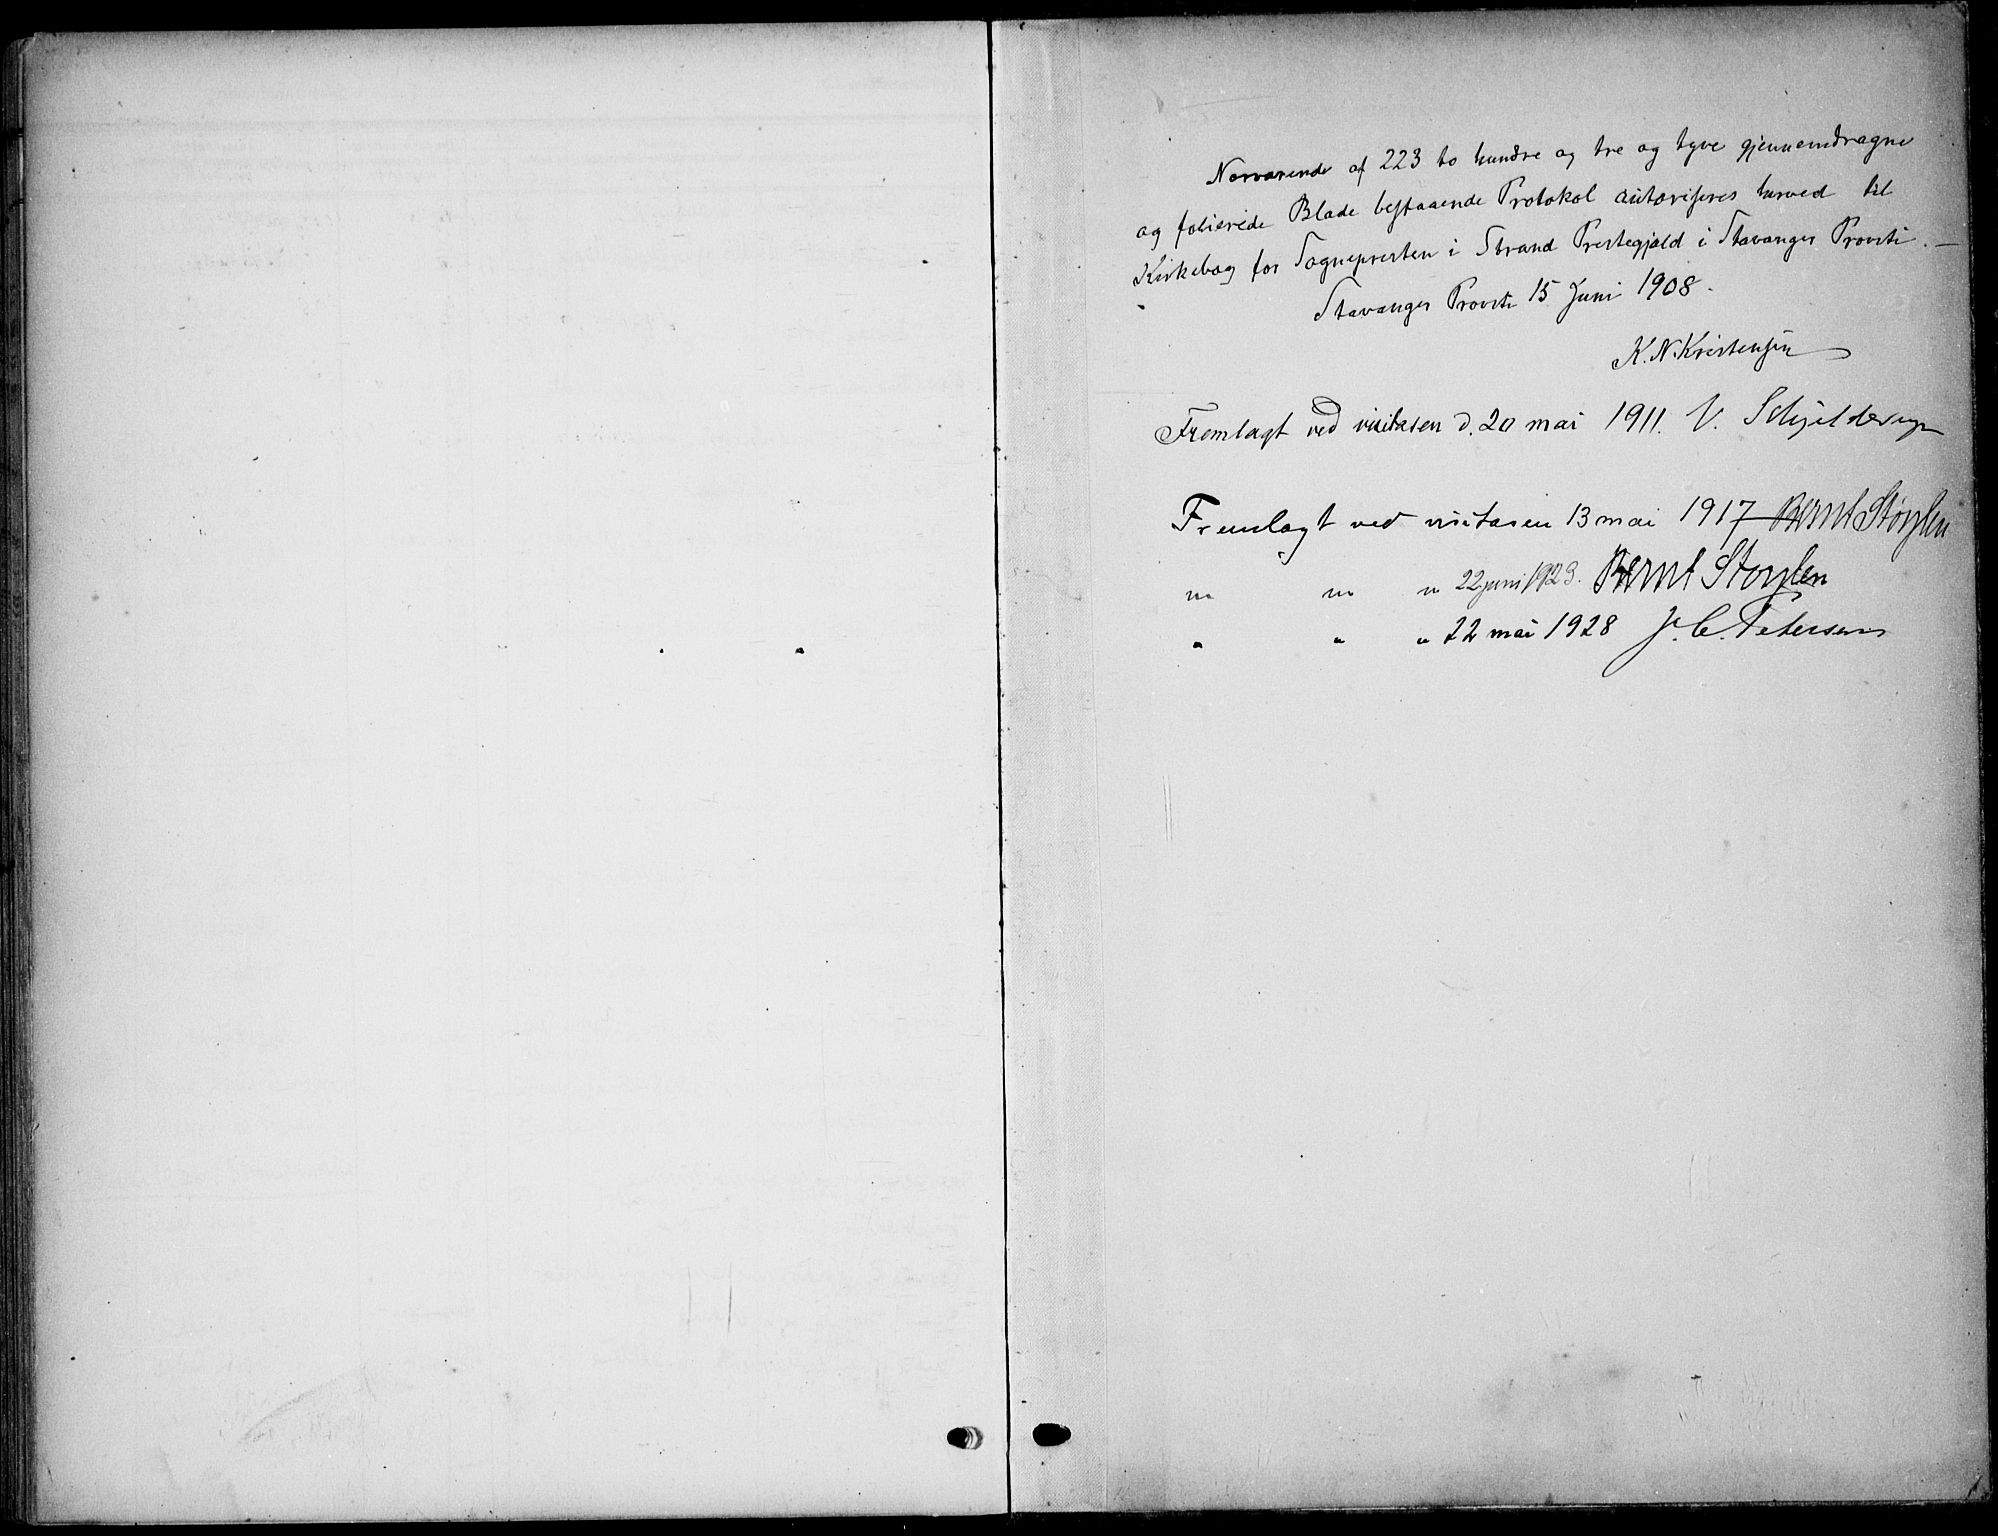 Nærværende af 223 to hundre og tre og tyve gjennemdragne
og folierede Blade bestaaende Protokol autoriseres herved til
Kirkebog for Sognepresten i Strand Prestegjæld i Stavanger Provsti. —
Stavanger Provsti 15 Juni 1908.
K. N. Kristensen
Fremlagt ved visitasen d. 20 mai 1911. V. Schjelderup
Fremlagt ved visitasen 13 mai 1917 Bernt Støylen
" " " 22 juni 1923. Bernt Støylen
" " " 22 mai 1928 J. C. Petersen